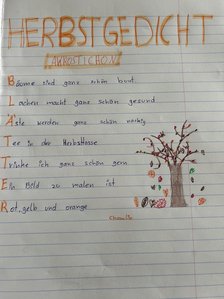 HERBSTGEDICHT
(AKROSTICHON)
Bäume sind ganz schön bunt.
Lachen macht ganz schön gesund
Äste werden ganz schön
Tee in der Herbsttasse
Trinke ich ganz schön gern
Ein Bild zu malen ist
Rot, gelb und orange